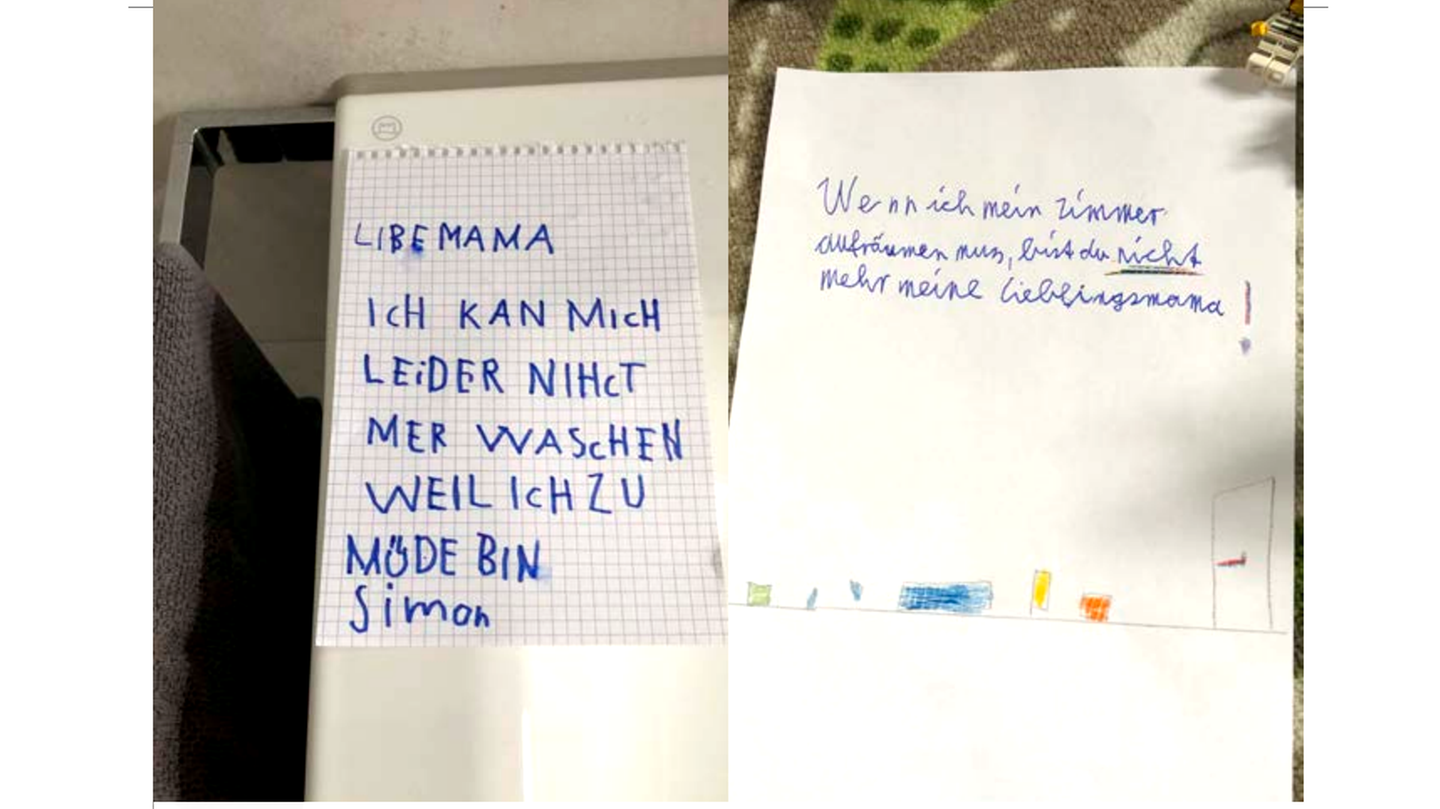 LIBE MAMA
ICH KAN MICH
LEiDER NIHCT
MER WASCHEN
WEIL ICH ZU
MÜDE BIN
Simon
Wenn ich mein zimmer
aufräumen mus, bist du nicht
mehr meine Lieblingsmama!